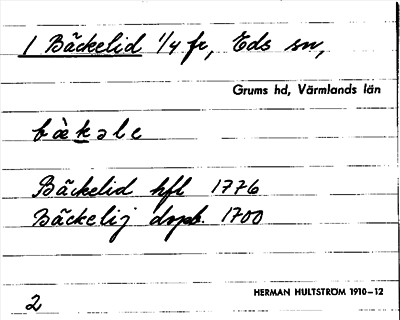 1 Bäckelid 1/4 fr, Eds sn,
Grums hd, Värmlands län
bæ̀kəle
Bäckelid hfl 1776
Bäckelij dopb. 1700
HERMAN HULTSTRÖM 1910–12
2